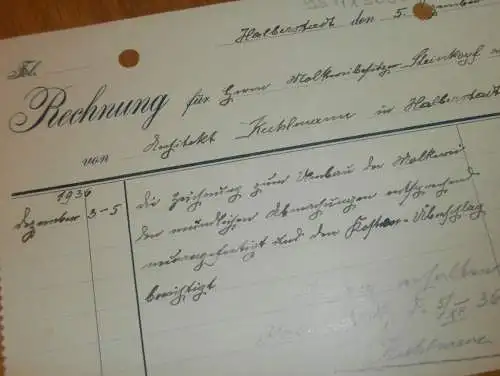 Halberstadt den 5. Dezember
Fol.
Rechnung für Herrn Molkereibesitzer Steinkopf
von Architekt Kuhlmann in Halberstadt
1936
Dezember 3-5
Die Zeichnung zum Umbau der Molkerei
den mündlichen Abmachungen entsprechend
neu angefertigt und den Kosten-Überschlag
berichtigt
erhalten
5/XII 36
Kuhlmann